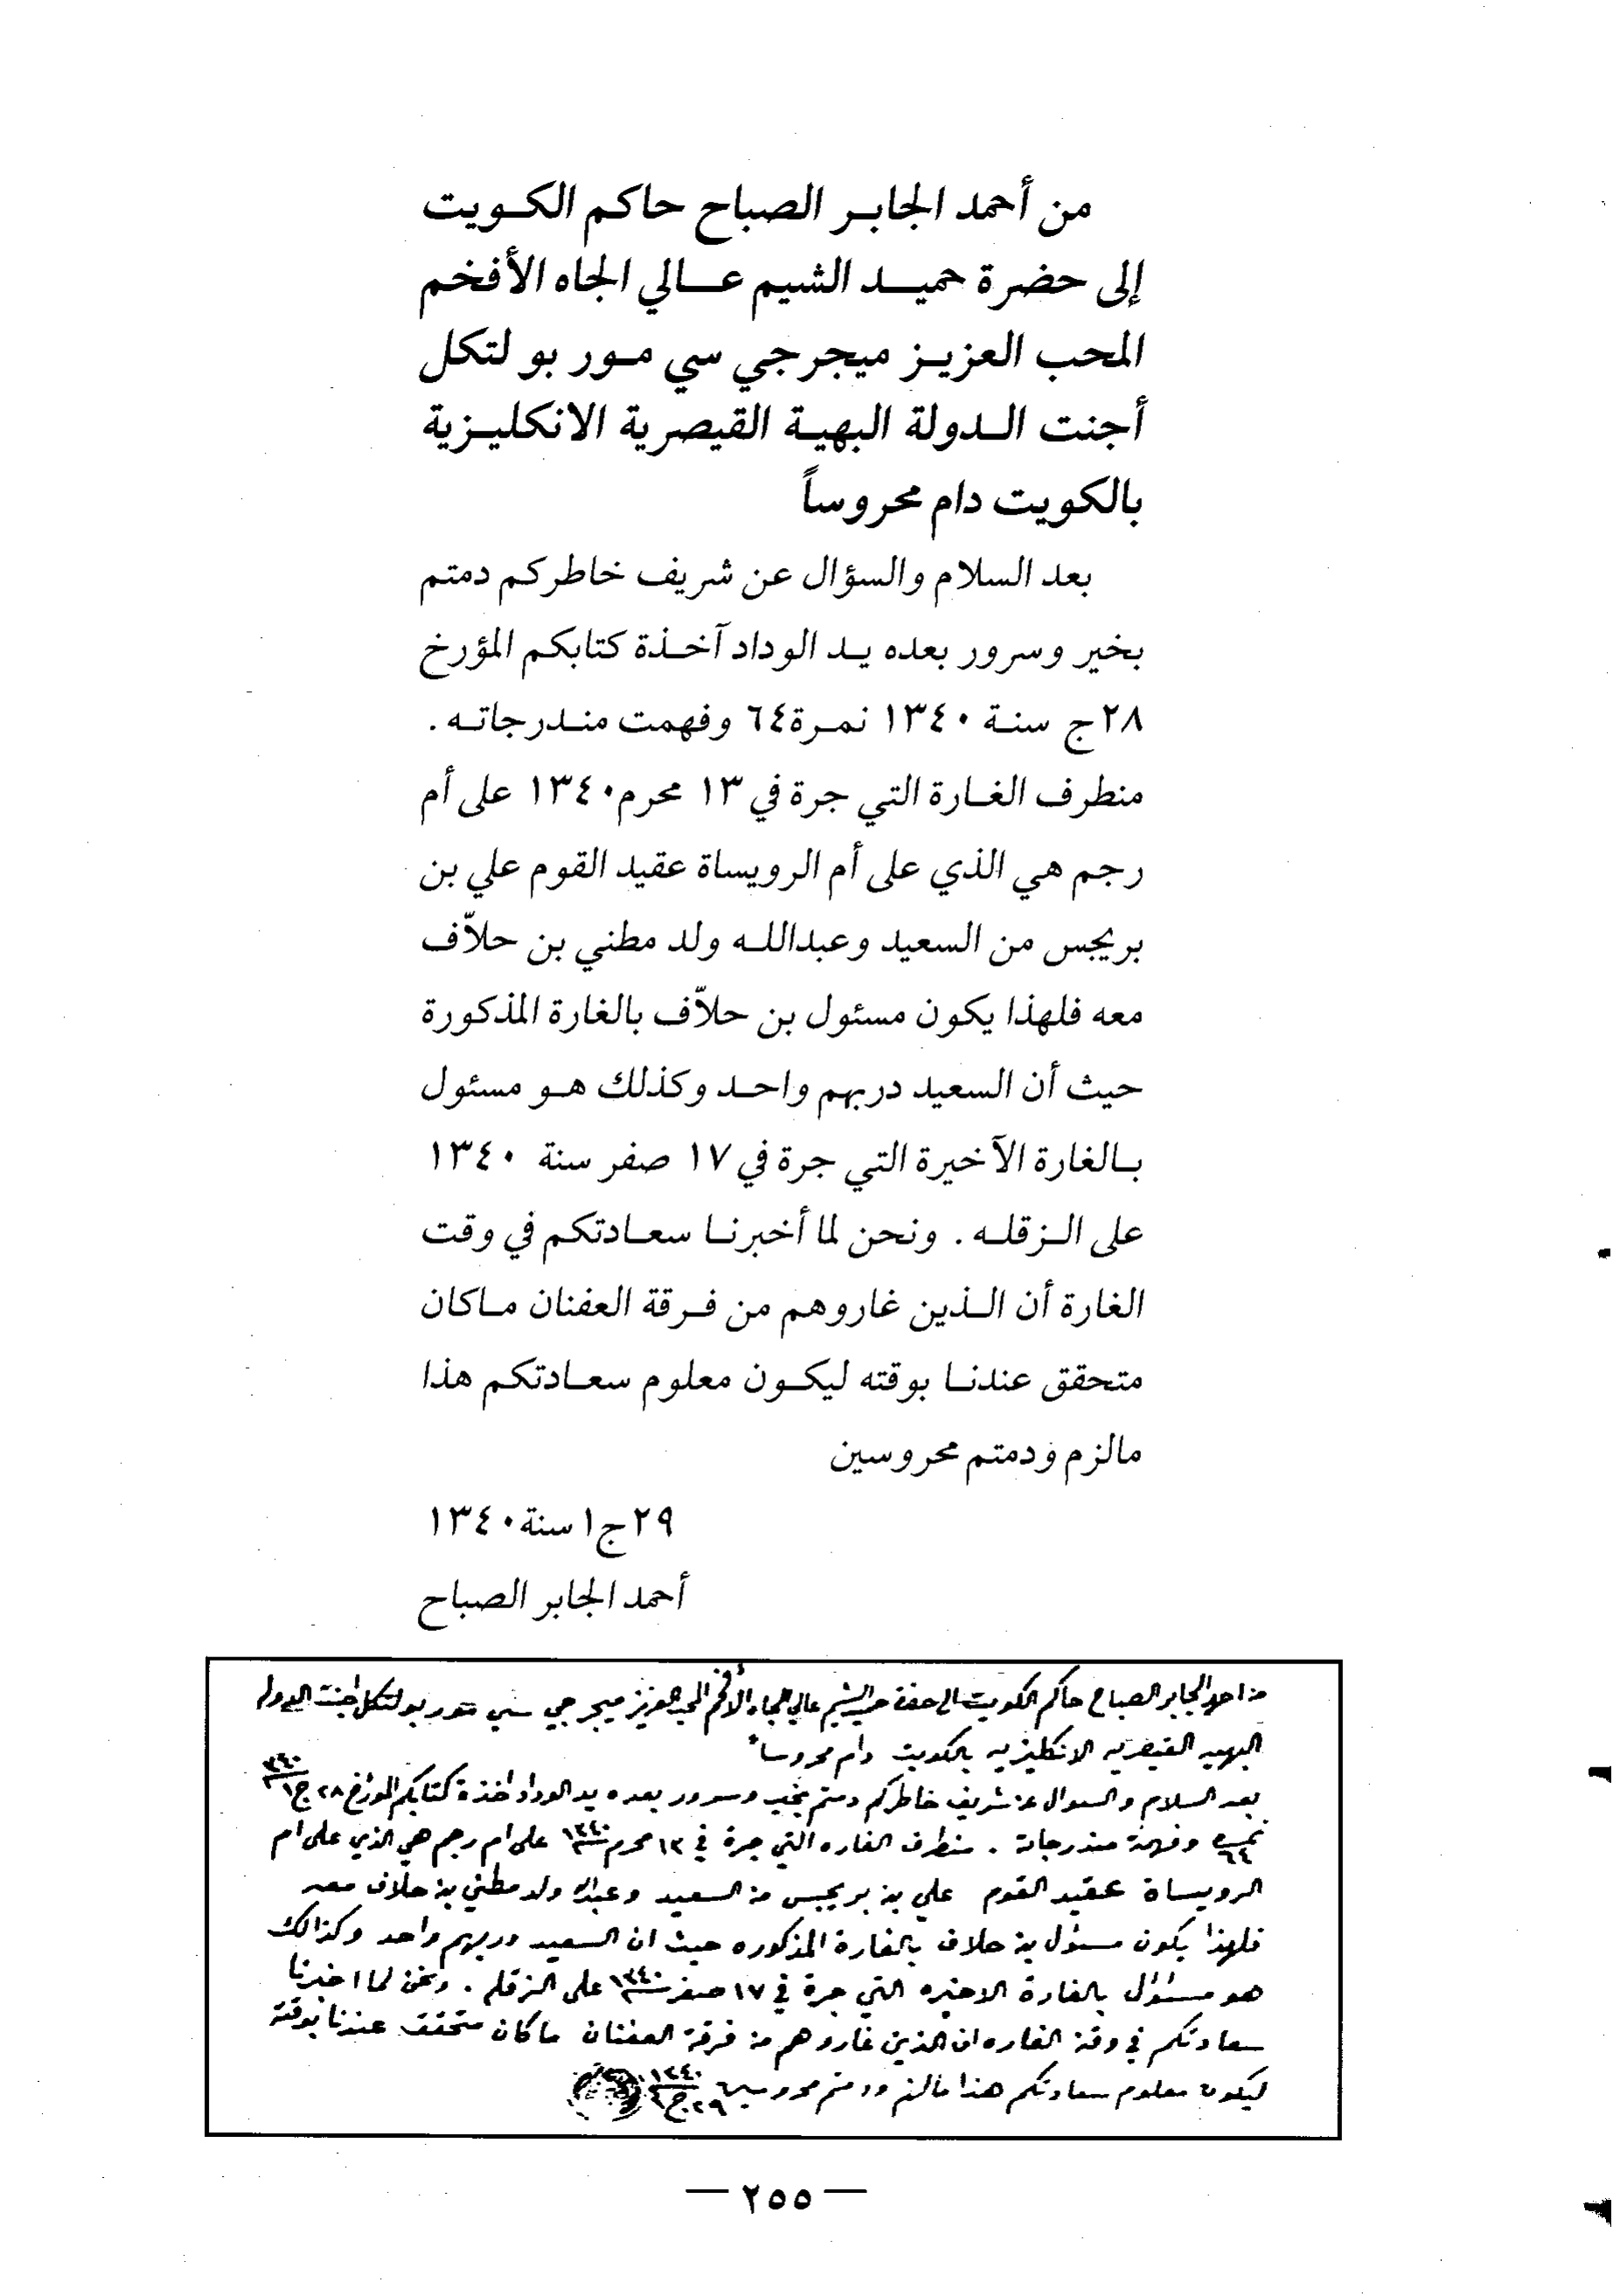 من أحمد الجابر الصباح حاكم الكويت
إلى حضرة حميد الشيم عالي الجاه الأفخم
المحب العزيز ميجرجي سي مور بو لتكل
أجنت الدولة البهية القيصرية الانكليزية
بالكويت دام محروساً
بعد السلام والسؤال عن شريف خاطركم دمتم
بخير وسرور بعده يد الوداد آخذة كتابكم المؤرخ
٢٨ج سنة ١٣٤٠ نمرة٦٤ وفهمت مندرجاته .
منطرف الغارة التي جرة في ١٣ محرم١٣٤٠ على أم
رجم هي الذي على أم الرويساة عقيد القوم علي بن
بريجس من السعيد وعبدالله ولد مطني بن حلاّف
معه فلهذا يكون مسئول بن حلاّف بالغارة المذكورة
حيث أن السعيد دربهم واحد وكذلك هو مسئول
بالغارة الآخيرة التي جرة في ١٧ صفر سنة ١٣٤٠
على الزقله . ونحن لما أخبرنا سعادتكم في وقت
الغارة أن الذين غاروهم من فرقة العفنان ماكان
متحقق عندنا بوقته ليكون معلوم سعادتكم هذا
مالزم ودمتم محروسين
٢٩ج١سنة١٣٤٠
أحمد الجابر الصباح
من احمد الجابر الصباح حاكم الكويت الى حضرة حميد الشيم عالي الجاه الأفخم المحب العزيز ميجر جي سي مور بو لتكل اجنت الدولة
البهيه القيصريه الانكليزيه بالكويت دام محروساً
بعد السلام والسوال عن شريف خاطركم دمتم بخير وسرور بعده يد الوداد اخذة كتابكم المورخ ٢٨ ج١ ٣٤٠
نمرة ٦٤ وفهمة مندرجاته . منطرف الغاره التي جرة في ١٣ محرم ١٣٤٠ على ام رجم هي الذي على ام
الرويساة عقيد القوم علي بن بريجس من السعيد وعبدالله ولد مطني بن حلاف معه
فلهذا يكون مسئول بن حلاف بالغارة المذكوره حيث ان السعيد دربهم واحد وكذالك
هو مسئول بالغارة الاخيره التي جرة في ١٧ صفر ١٣٤٠ على الزقله . ونحن لما اخبرنا
سعادتكم في وقة الغاره ان الذين غاروهم من فرقة العفنان ماكان متحقق عندنا بوقته
ليكون معلوم سعادتكم هذا مالزم ودمتم محروسين ٢٩ ج١ ١٣٤٠
— ٢٥٥ —